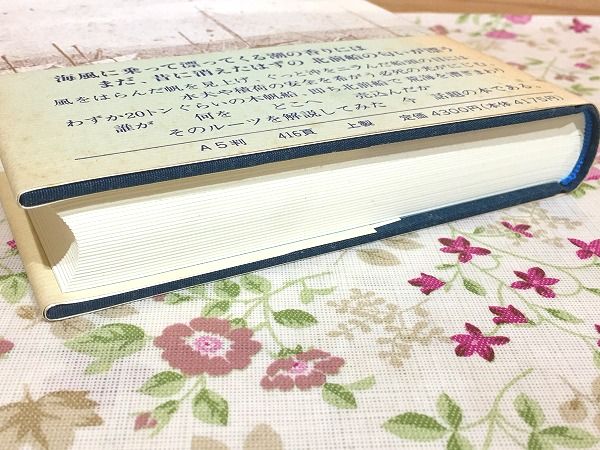 海風に乗って漂ってくる潮の香りには
まだ、昔に消えたはずの 北前船の匂いが漂う
風をはらんだ帆を見上げ、ぐっと沖を
水夫や積荷の安全を
わずか20トンぐらいの木帆船 即ち北前船
誰が 何を どこへ 積込んだか
そのルーツを解説してみた 今 話題の本である。
A5判 416頁 上製 定価4300円(本体4175円)